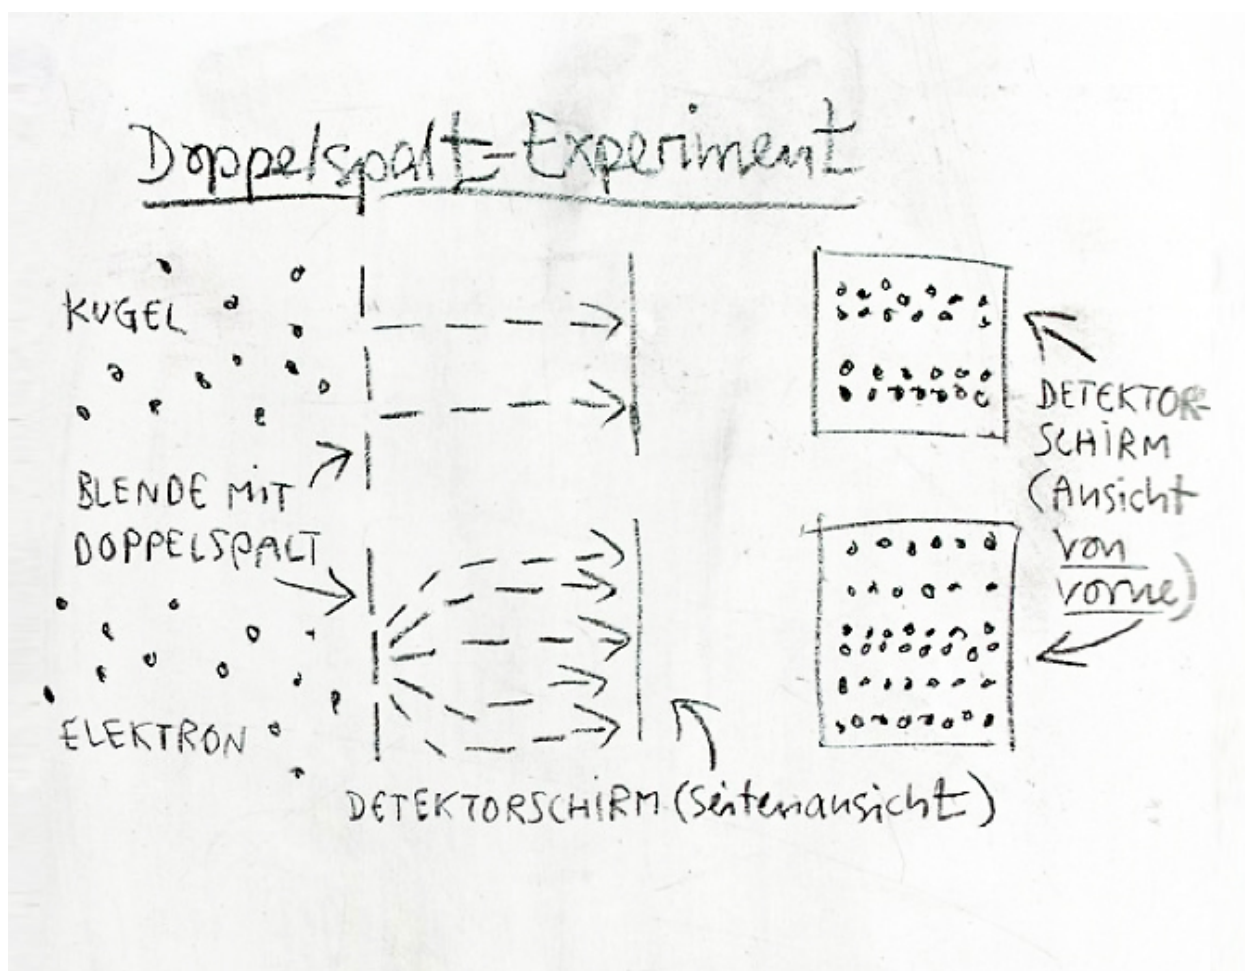 Doppelspalt-Experiment
KUGEL
BLENDE MIT
DOPPELSPALT
ELEKTRON
DETEKTORSCHIRM (Seitenansicht)
DETEKTOR-
SCHIRM
(Ansicht
von
vorne)